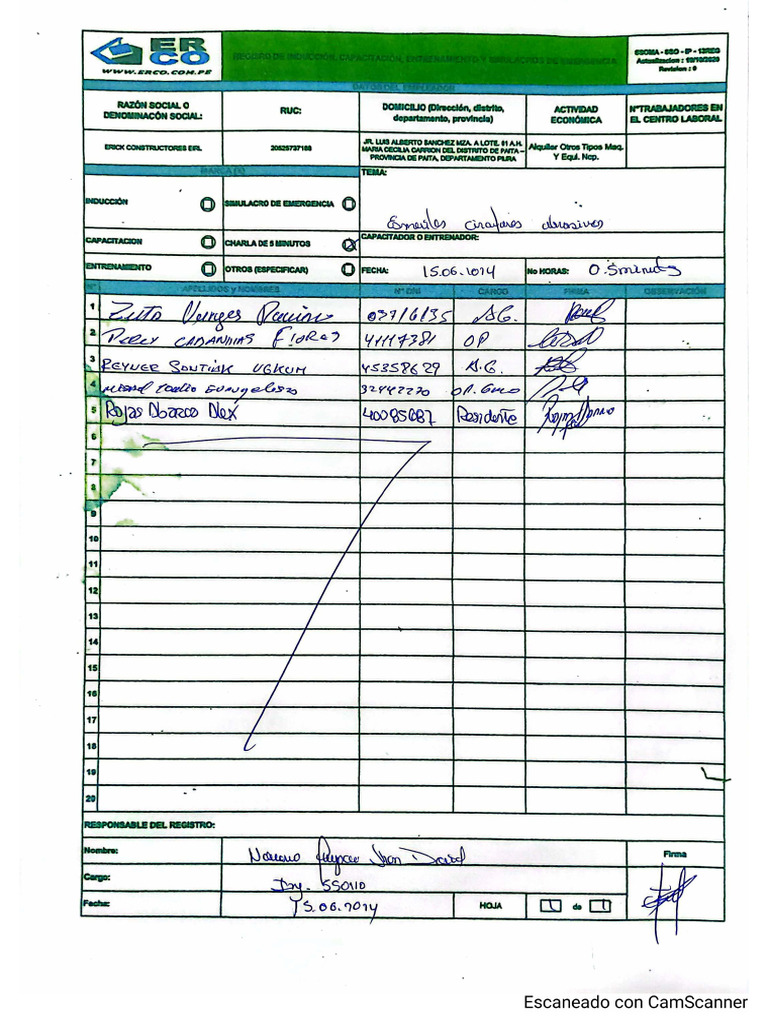 ERCO
WWW.ERCO.COM.PE
REGISTRO DE INDUCCIÓN, CAPACITACIÓN, ENTRENAMIENTO Y SIMULACROS DE EMERGENCIA
SSOMA - SSO - IP - 13REG
Actualizacion : 10/10/2020
Revision : 0
DATOS DEL EMPLEADOR
RAZÓN SOCIAL O DENOMINACÓN SOCIAL:
RUC:
DOMICILIO (Dirección, distrito, departamento, provincia)
ACTIVIDAD ECONÓMICA
N°TRABAJADORES EN EL CENTRO LABORAL
ERICK CONSTRUCTORES EIRL
20525737188
JR. LUIS ALBERTO SANCHEZ MZA. A LOTE. 01 A.H. MARIA CECILIA CARRION DEL DISTRITO DE PAITA – PROVINCIA DE PAITA, DEPARTAMENTO PIURA
Alquiler Otros Tipos Maq. Y Equi. Ncp.
MARCA (X)
TEMA:
INDUCCIÓN
SIMULACRO DE EMERGENCIA
Esmeriles circulares abrasivos
CAPACITACION
CHARLA DE 5 MINUTOS X
CAPACITADOR O ENTRENADOR:
ENTRENAMIENTO
OTROS (ESPECIFICAR)
FECHA: 15.06.2024
No HORAS: 0.5minutos
N° APELLIDOS y NOMBRES N° DNI CARGO FIRMA OBSERVACIÓN
1 A.G.
2 41117381 OP
3 REYNER 45358629 A.G.
4 32442270
5 Rojas Abarca Alex 40085687 Residente
6
7
8
9
10
11
12
13
14
15
16
17
18
19
20
RESPONSABLE DEL REGISTRO:
Nombre: Jhon David
Firma
Cargo: Ing. SSOMA
Fecha: 15.06.2024
HOJA 1 de 1
Escaneado con CamScanner